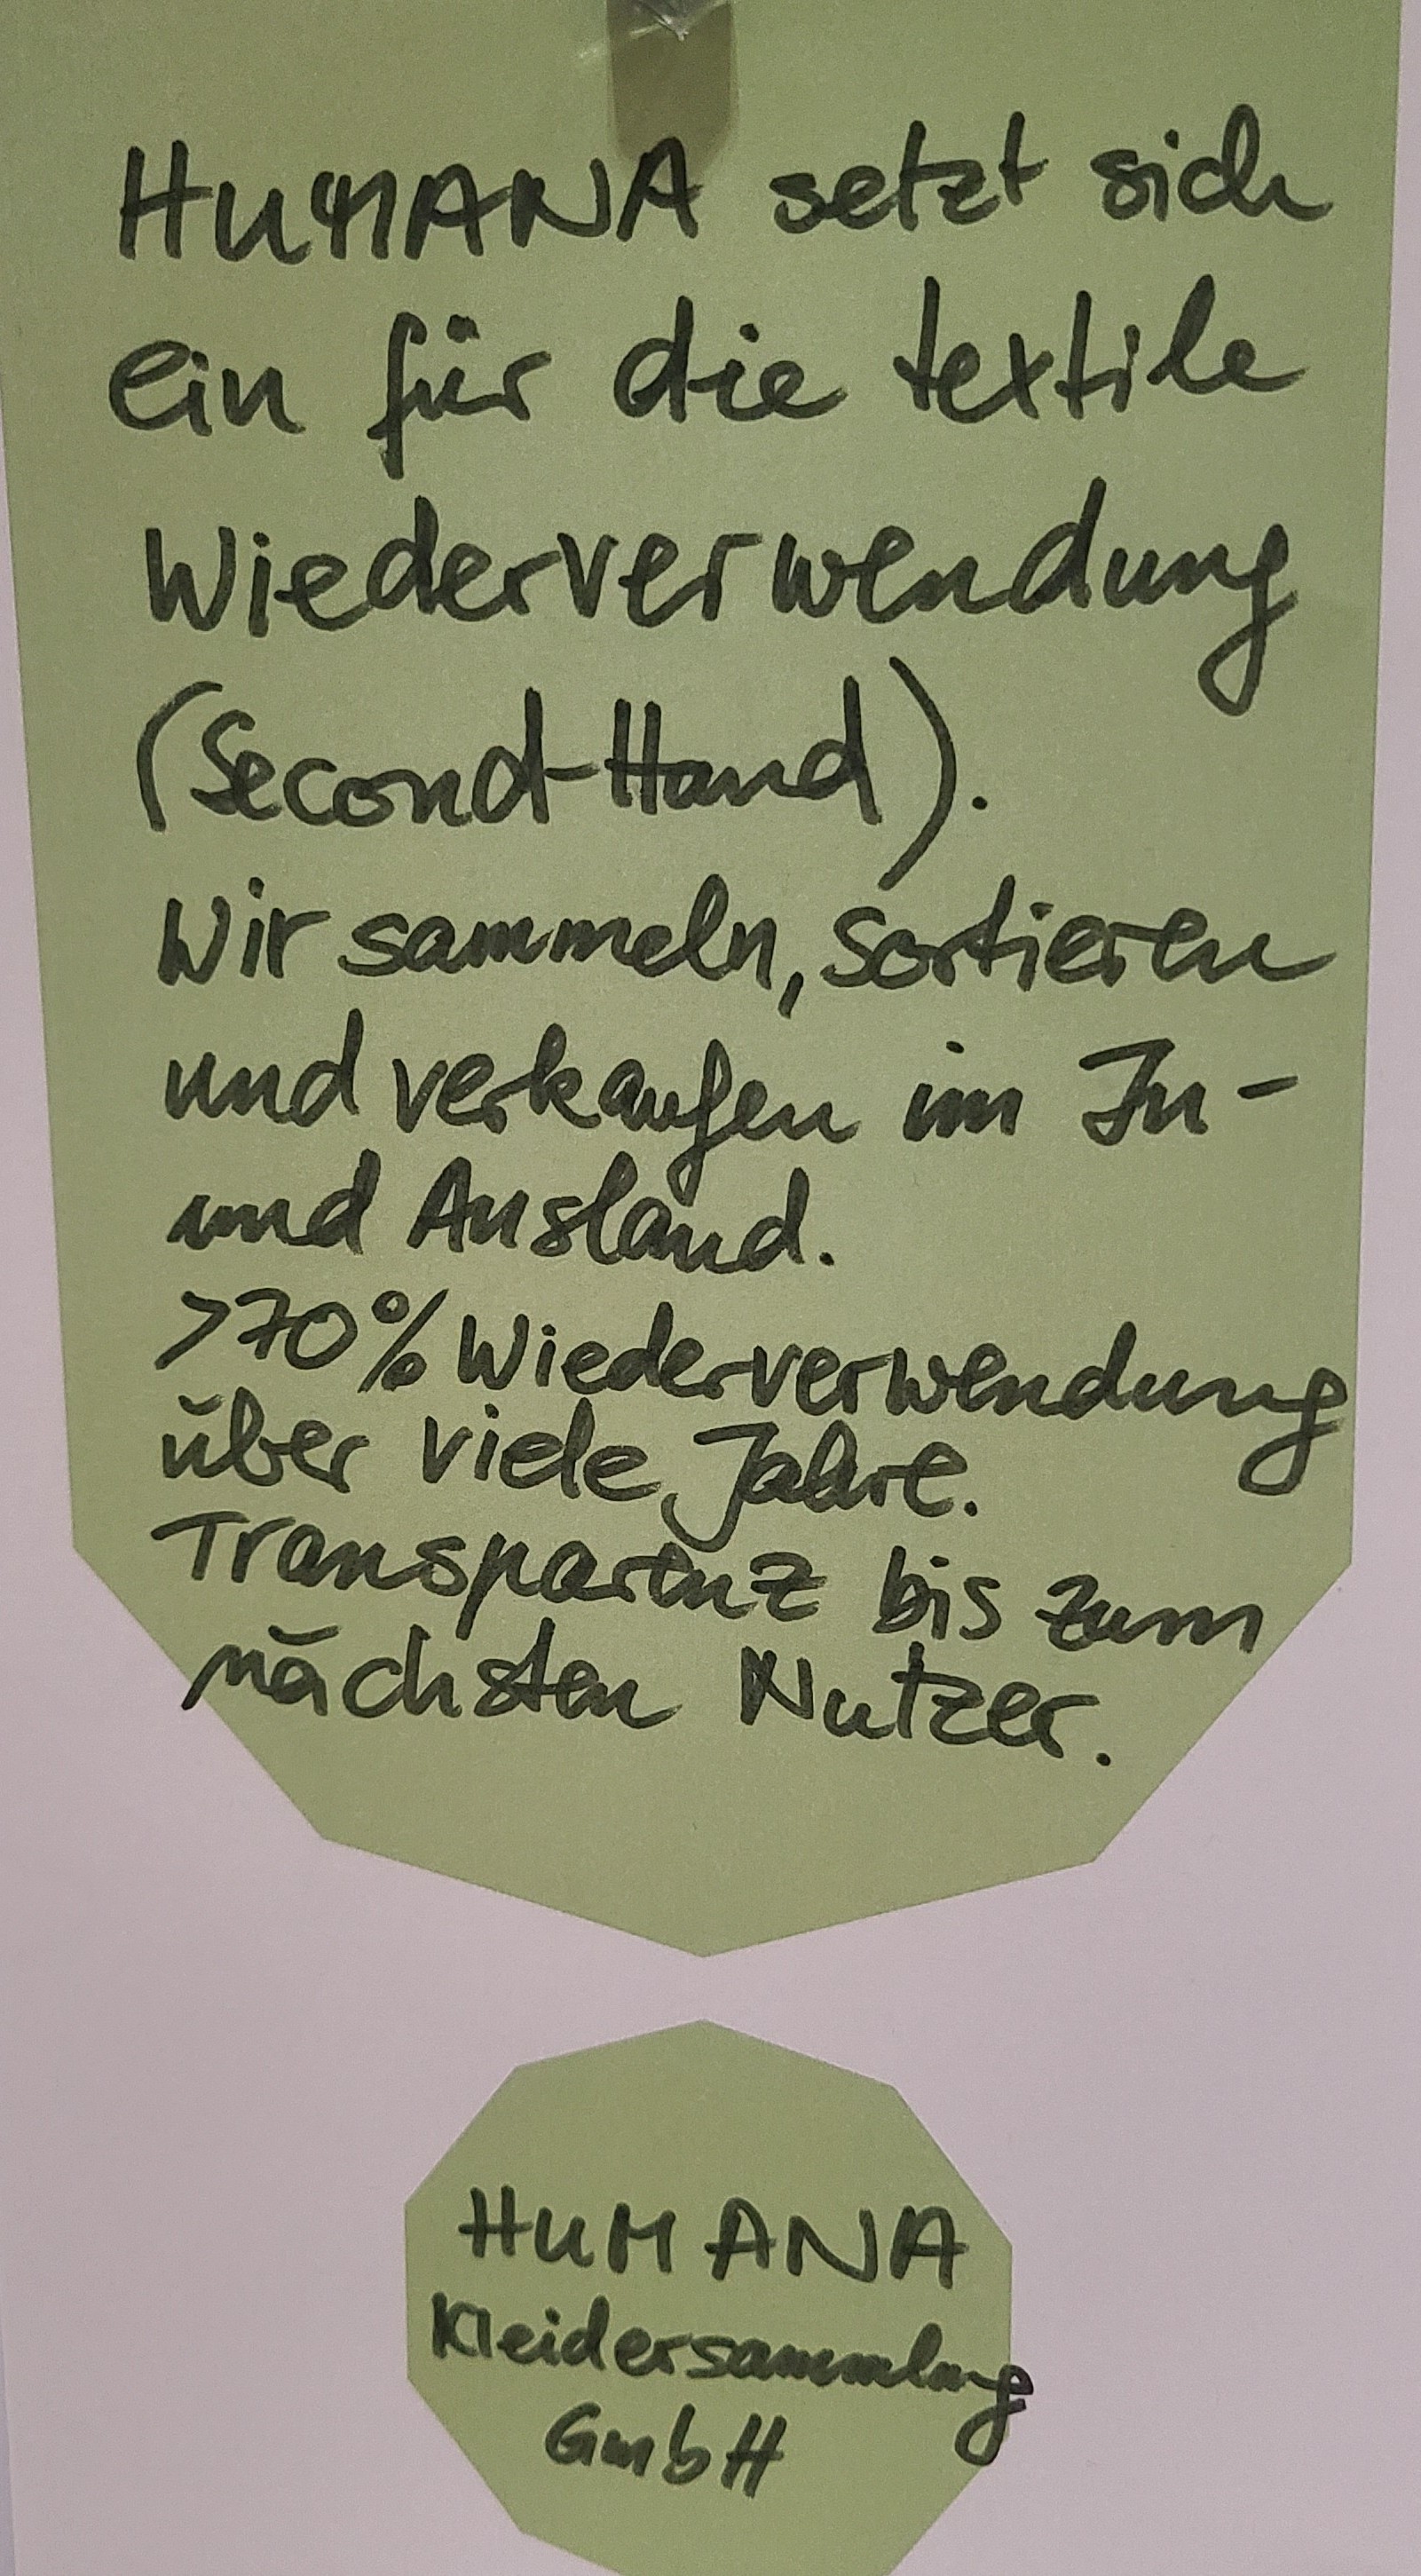 HUMANA setzt sich
ein für die textile
Wiederverwendung
(Second-Hand).
Wir sammeln, sortieren
und verkaufen im In-
und Ausland.
>70% Wiederverwendung
über viele Jahre.
Transparenz bis zum
nächsten Nutzer.
HUMANA
Kleidersammlung
GmbH